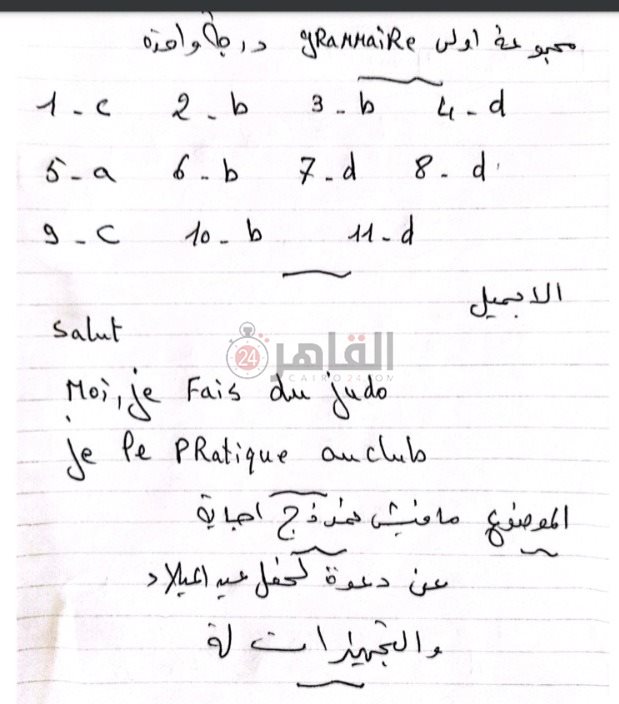 مجموعة اولى gRaMMaiRe درجة واحدة
1 - c 2 - b 3 - b 4 - d
5 - a 6 - b 7 - d 8 - d
9 - c 10 - b 11 - d
الايميل
Salut
القاهرة 24
CAIRO24.COM
Moi, je Fais du judo
je le PRatique au club
الموضوع مافيش نموذج اجابة
عن دعوة لحفل عيد الميلاد
والتجهيزات له